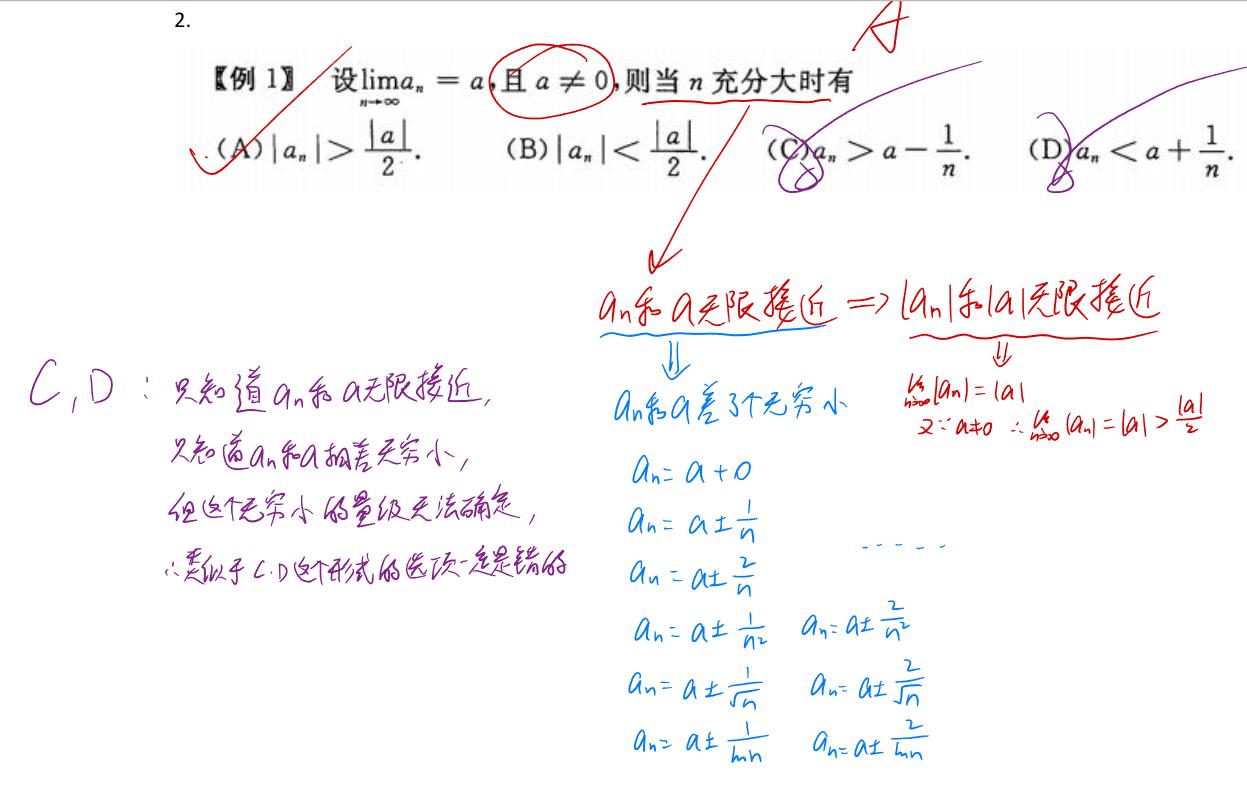 2.
A
【例 1】 设 lim a_n = a, 且 a ≠ 0, 则当 n 充分大时有
n→∞
(A) |a_n| > |a|/2. (B) |a_n| < |a|/2. (C) a_n > a − 1/n. (D) a_n < a + 1/n.
a_n和 a无限接近 ⇒ |a_n|和|a|无限接近
a_n和a差了个无穷小
lim n→∞ |a_n| = |a|
又∵a≠0 ∴ lim n→∞ |a_n| = |a| > |a|/2
a_n = a + 0
a_n = a ± 1/n
a_n = a ± 2/n
a_n = a ± 1/n² a_n = a ± 2/n²
a_n = a ± 1/√n a_n = a ± 2/√n
a_n = a ± 1/lnn a_n = a ± 2/lnn
C, D : 只知道a_n和 a无限接近,
只知道a_n和a相差无穷小,
但这个无穷小的量级无法确定,
∴类似于C.D这个形式的选项一定是错的